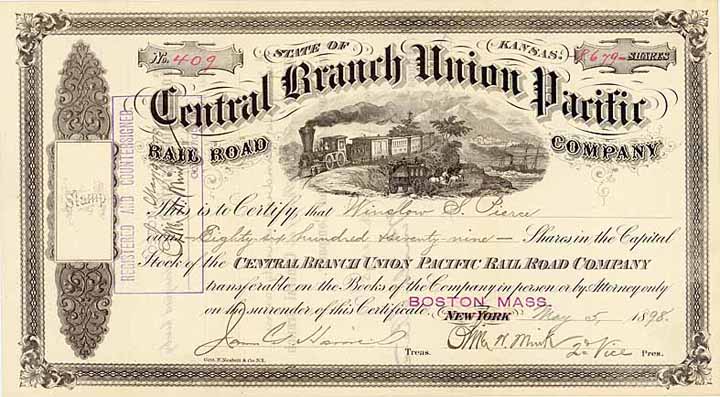 STATE OF KANSAS.
No. 409
8679 SHARES
Central Branch Union Pacific
RAIL ROAD COMPANY
REGISTERED AND COUNTERSIGNED
Stamp
This is to Certify, that Winslow S. Pierce
owns Eighty six hundred & seventy nine Shares in the Capital
Stock of the CENTRAL BRANCH UNION PACIFIC RAIL ROAD COMPANY
transferable on the Books of the Company in person or by Attorney only
on the surrender of this Certificate.
BOSTON, MASS.
NEW YORK May 5, 1898
Treas.
2d Vice Pres.
Geo. F. Nesbitt & Co. N.Y.